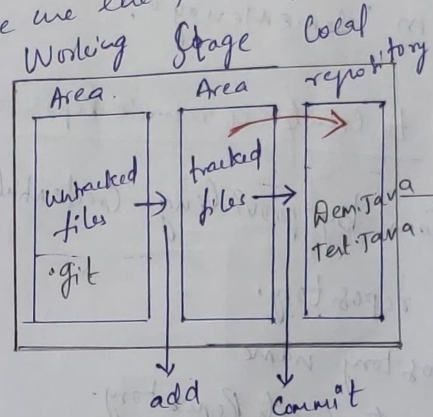 Working Stage Local
Area. Area repository
untracked
files
.git
tracked
files
Dem.Java
Test.Java.
add
Commit